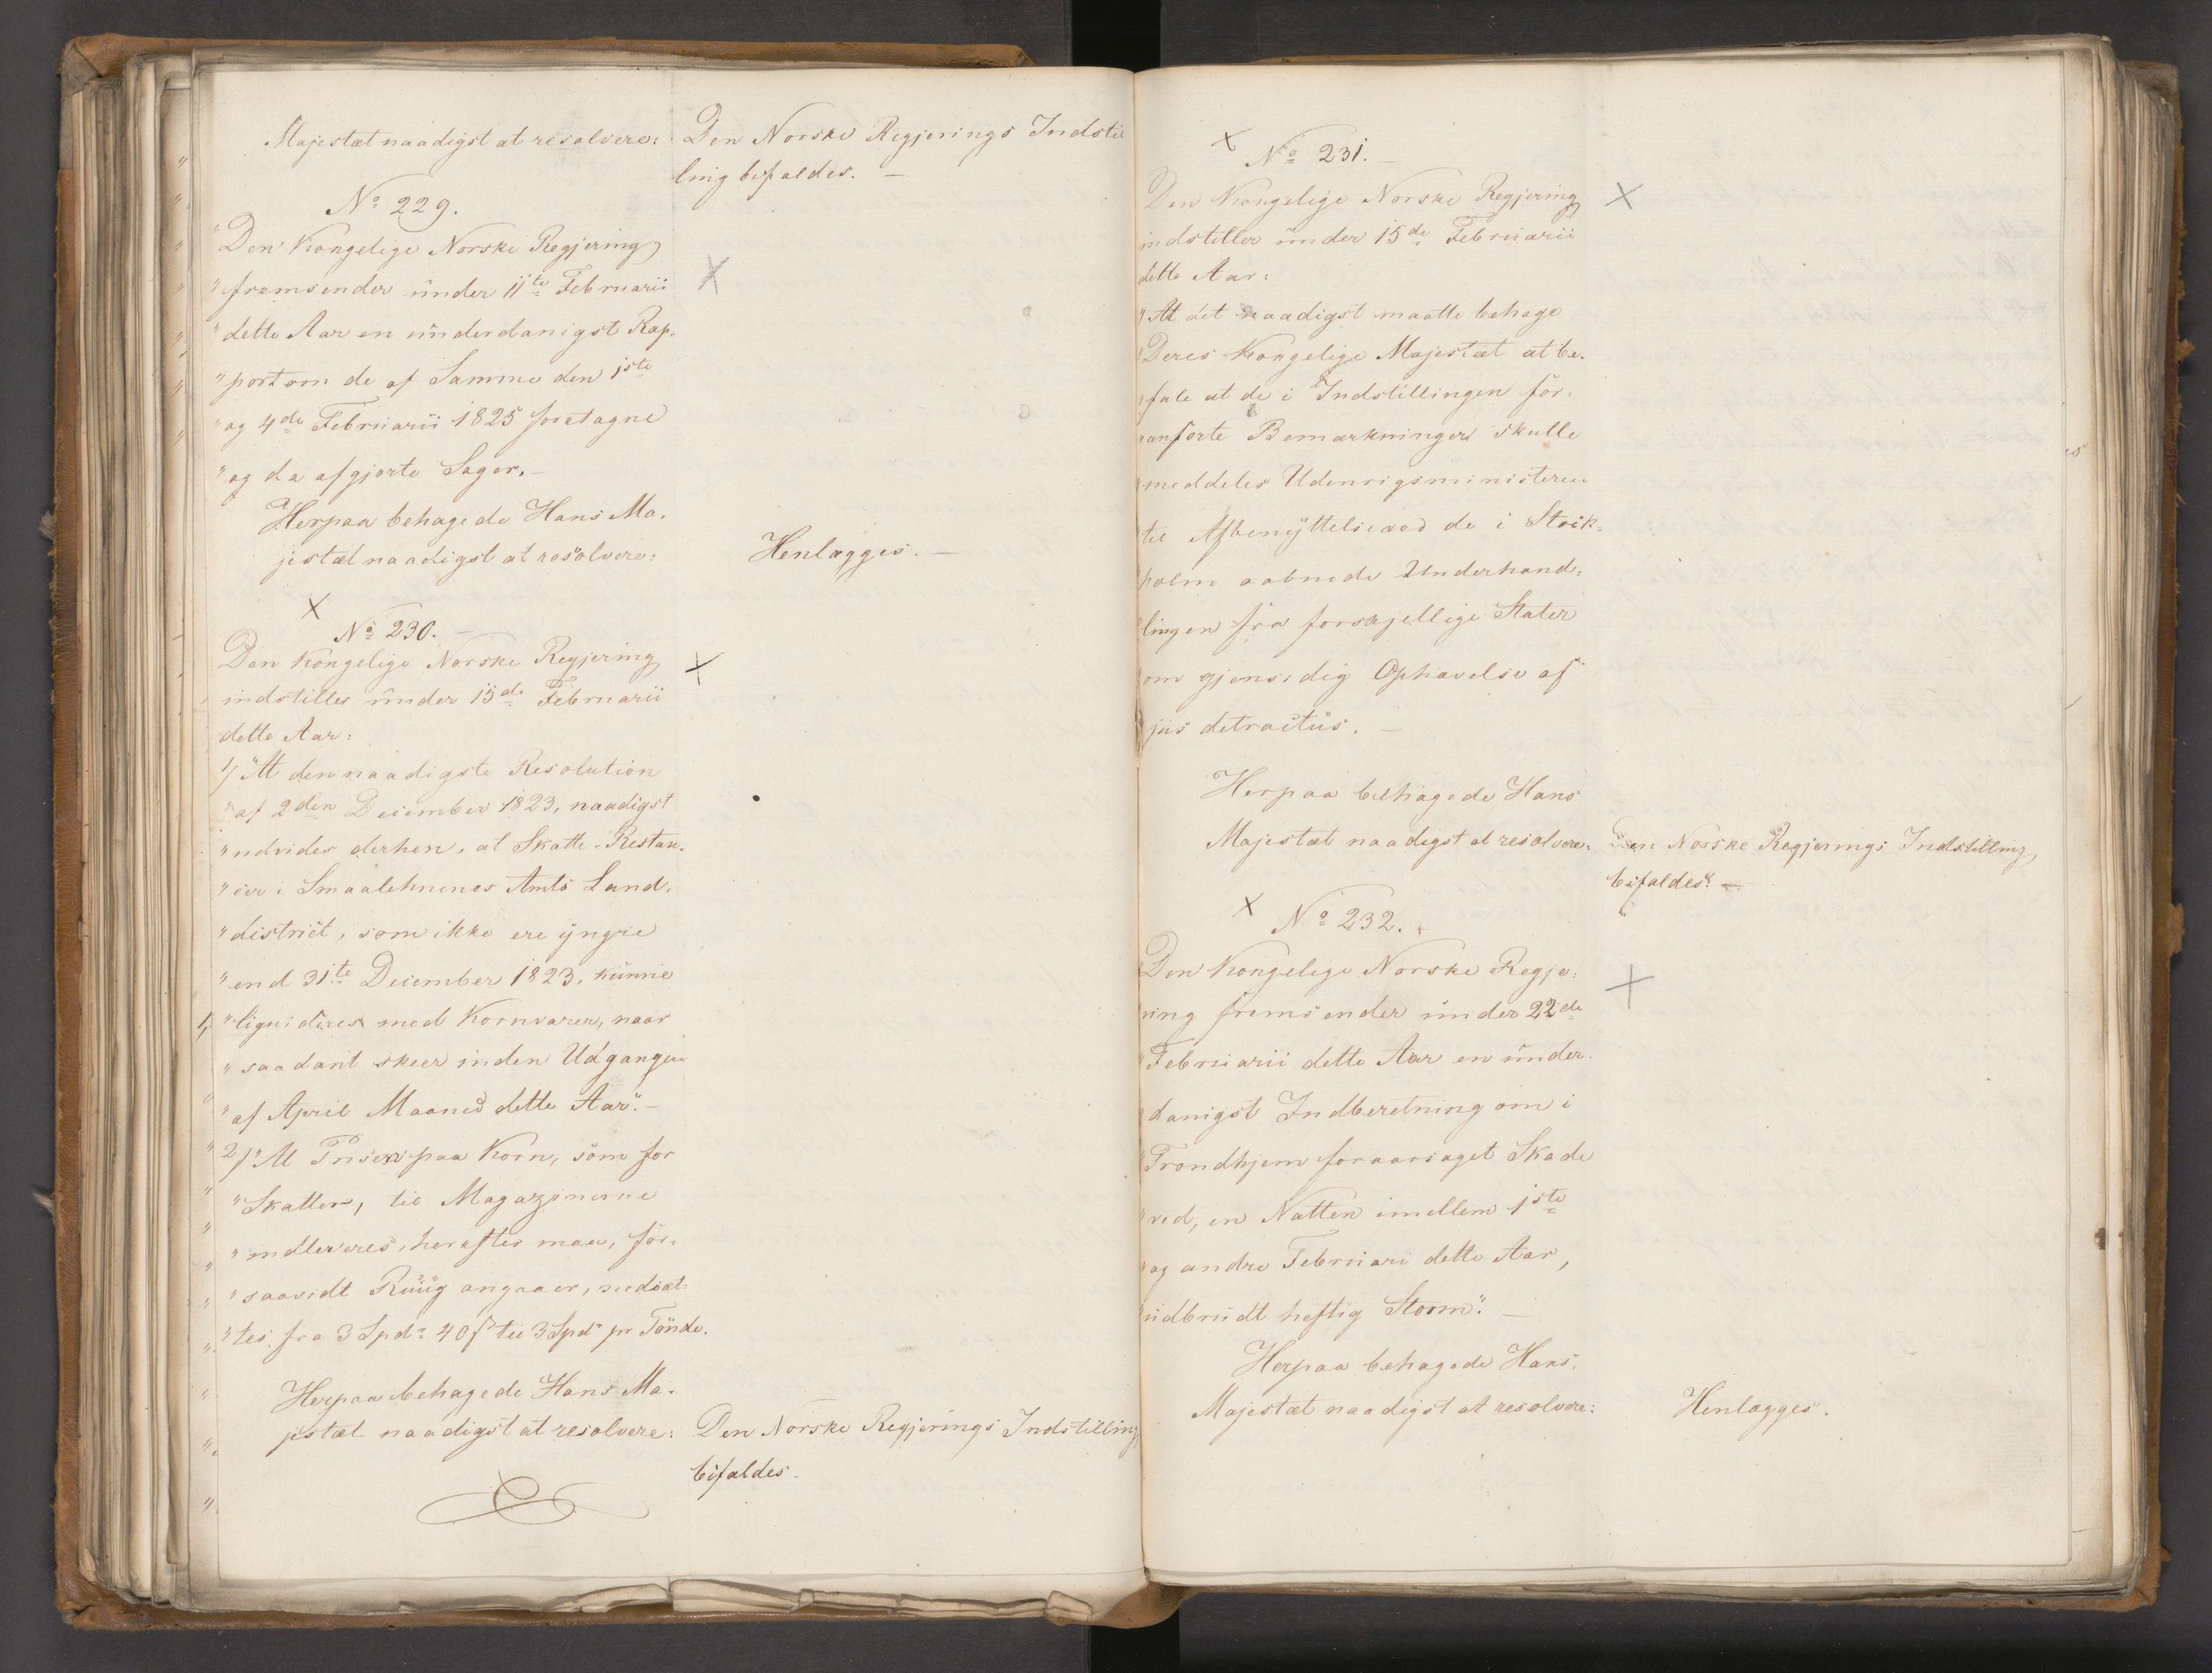 Majestæt naadigst at resolvere: Den Norske Regjerings Indstil
ling bifaldes. —
No 229.
"Den Kongelige Norske Regjering
"fremsender under 11te Februarii
"dette Aar en underdanigst Rap-
"port om de af Samme den 1ste
"og 4de Februarii 1825 foretagne
"og da afgjorte Sager. —
Herpaa behagede Hans Ma-
jestæt naadigst at resolvere: Henlægges. —
No 230. —
Den Kongelige Norske Regjering
indstiller under 15de Februarii
dette Aar:
1/ "At den naadigste Resolution
"af 2den December 1823, naadigst
"udvides derhen, at Skatte-Restan-
"cer i Smaalehnenes Amts Land-
"district, som ikke ere yngre
"end 31te December 1823, kunne
"liqvideres med Kornvarer, naar
"saadant skeer inden Udgangen
"af April Maaned dette Aar". —
2/ "At Prisen paa Korn, som for
"Skatter, til Magazinerne
"indleveres, herefter maa, for-
"saavidt Ruug angaaer, nedsæt-
"tes fra 3 Spdr 40 ß til 3 Spdr pr Tønde.
Herpaa behagede Hans Ma-
jestæt naadigst at resolvere: Den Norske Regjerings Indstilling
bifaldes.
No 231. —
Den Kongelige Norske Regjering
indstiller under 15de Februarii
dette Aar:
"At det naadigst maatte behage
"Deres Kongelige Majestæt at be-
"fale at de i Indstillingen for-
"anførte Bemærkninger skulle
"meddeles Udenrigsministeren
"til Afbenyttelse ved de i Stock-
"holm aabnede Underhand-
"lingen fra forskjellige Stater
"om gjensidig Ophævelse af
"jus detractus. —
Herpaa behagede Hans
Majestæt naadigst at resolvere: Den Norske Regjerings Indstilling
bifaldes. —
No 232.
Den Kongelige Norske Regje-
ring fremsender under 22de
"Februarii dette Aar en under-
"danigst Indberetning om i
"Trondhjem foraarsaget Skade
"ved, en Natten imellem 1ste
"og andre Februari dette Aar,
"udbrudt heftig Storm". —
Herpaa behagede Hans
Majestæt naadigst at resolvere: Henlægges.